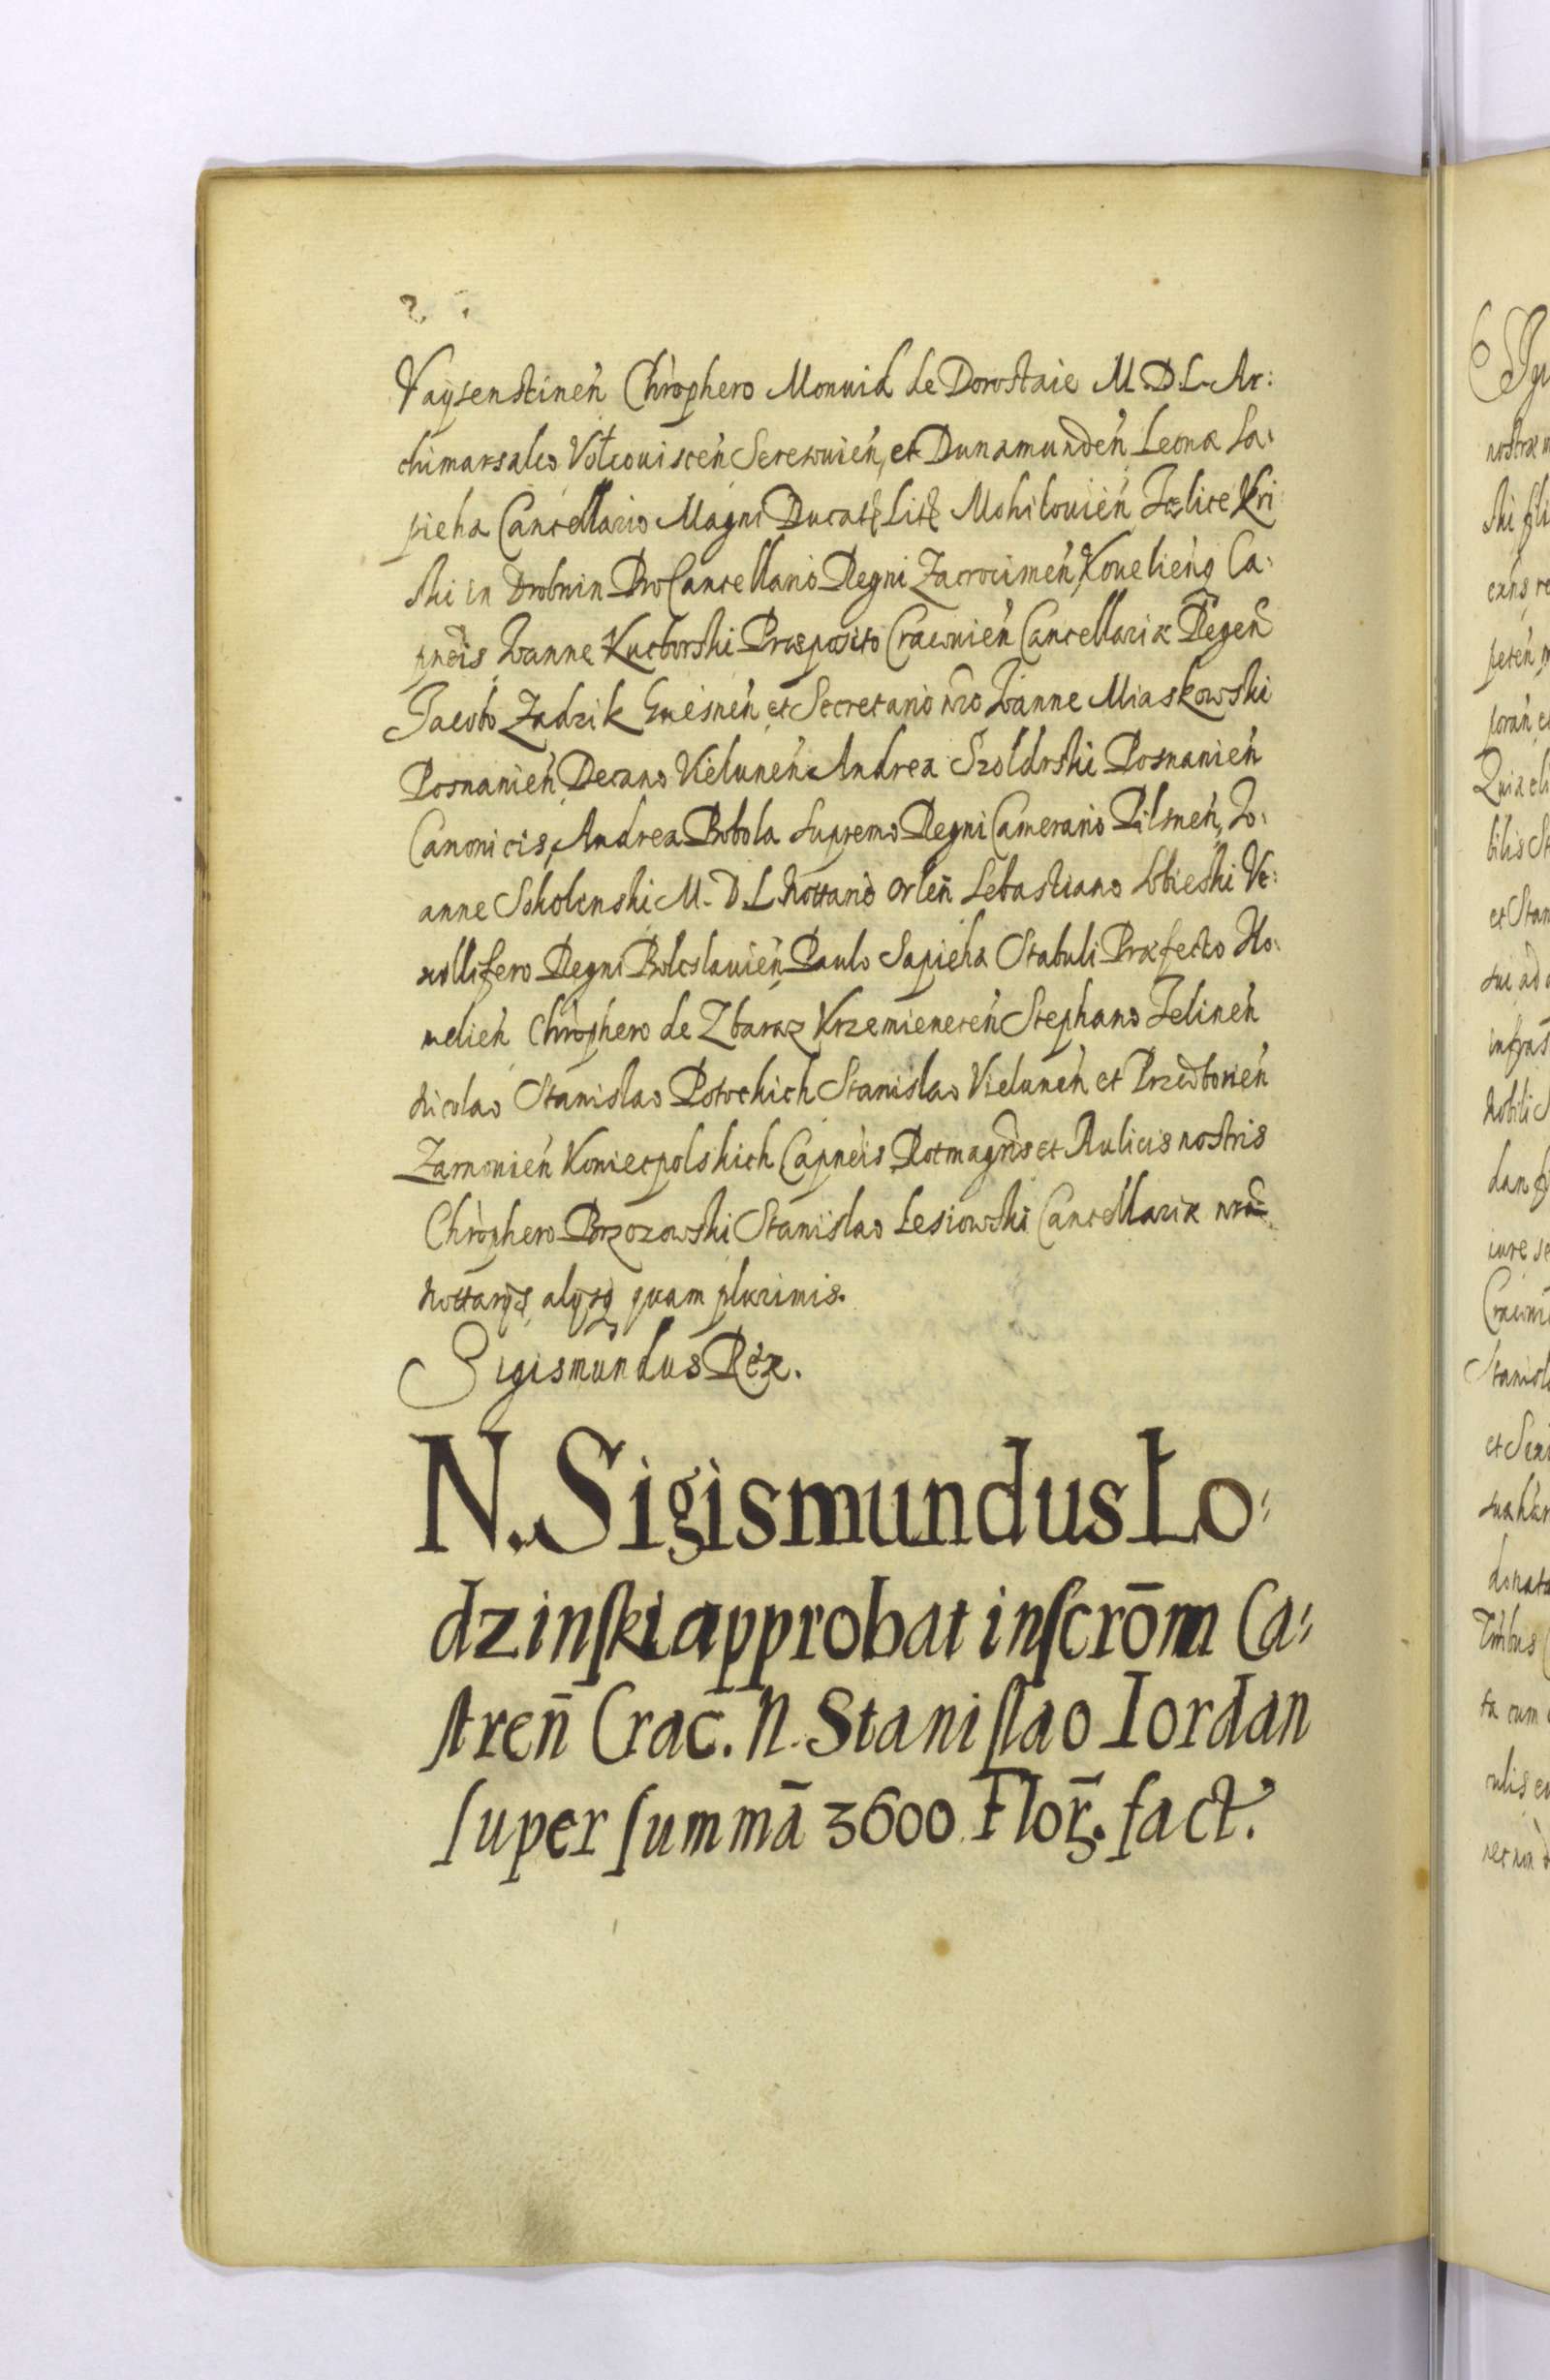 Vaysenstinen̄ Chrōphero Monuid de Dorostaie M. D. L. Ar:
chimarsalco Vołcouiscen̄ Serewien̄, et Dunamunden̄ Leone Sa:
pieha Cancellario Magni Ducatꝫ Litꝫ Mohilouien̄ Felice Kri
ski in Drobnin ProCancellario Regni Zacrocimen̄, Kouelienq̧ Ca:
pneis, Ioanne Kucborski Præposito Cracouien̄ Cancellariæ Regen̄
Jacobo Zadzik Gnesnen̄, et Secretario nro Ioanne Miaskowski
Posnanien̄, Decano Vielunen̄ Andrea Szoldrski Posnanien̄
Canonicis, Andrea Bobola supremo Regni Camerario Pilsnen̄, Jo:
anne Skolinski M. D. L. Nottario Orlen̄ Sebastiano Sobieski Ve:
xillifero Regni Boleslauien̄, Paulo Sapieha Stabuli Præfecto Ho:
melien̄ Chrōphero de Zbaraz Krzemienecen̄ Stephano Felinen̄
Nicolao Stanislao Potockich Stanislao Vielunen̄ et Przedborien̄
Zarnouien̄ Koniecpolskich Capneis, Rotmagris et Aulicis nostris
Chrōphero Brzozowski Stanislao Lesiowski Cancellariæ nræ
Nottarys, alysq̧ quam plurimis.
Sigismundus Rex.
N. Sigismundus Ło:
dzinſki approbat inſcrōm Ca:
ſtren̄ Crac̄. N. Staniſlao Iordan
ſuper ſummā 3600 Flor̄. fact.